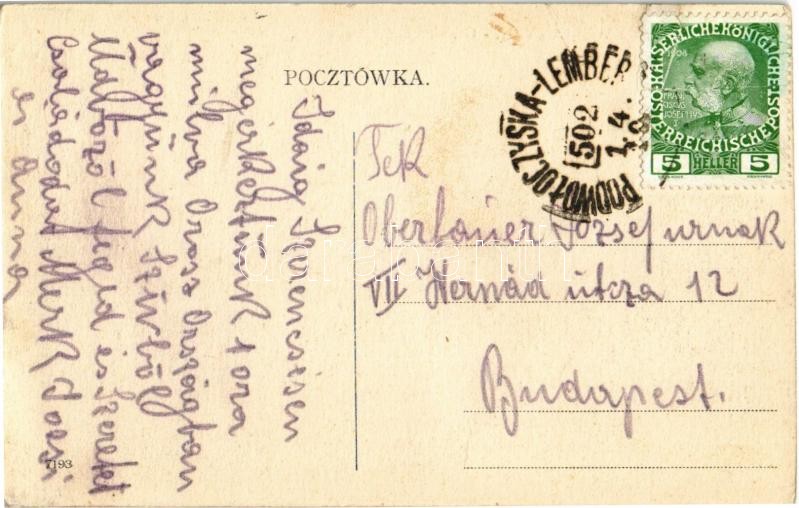 POCZTÓWKA.
Idáig szerencsésen
megérkeztünk 1 óra
mulva Orosz Országban
vagyunk Szivböl
üdvözöl
és szeretett
Családodat Merk Jocsi
és Anna
7193
PODWOŁOCZYSKA-LEMBER
502
1. 4.
KAISERLICHE KÖNIGLICHE
ÖSTERREICHISCHE POST
1908
5 HELLER 5
Tek
Oberbauer Józsefurnak
VII Hernád útcza 12
Budapest.
darabanth